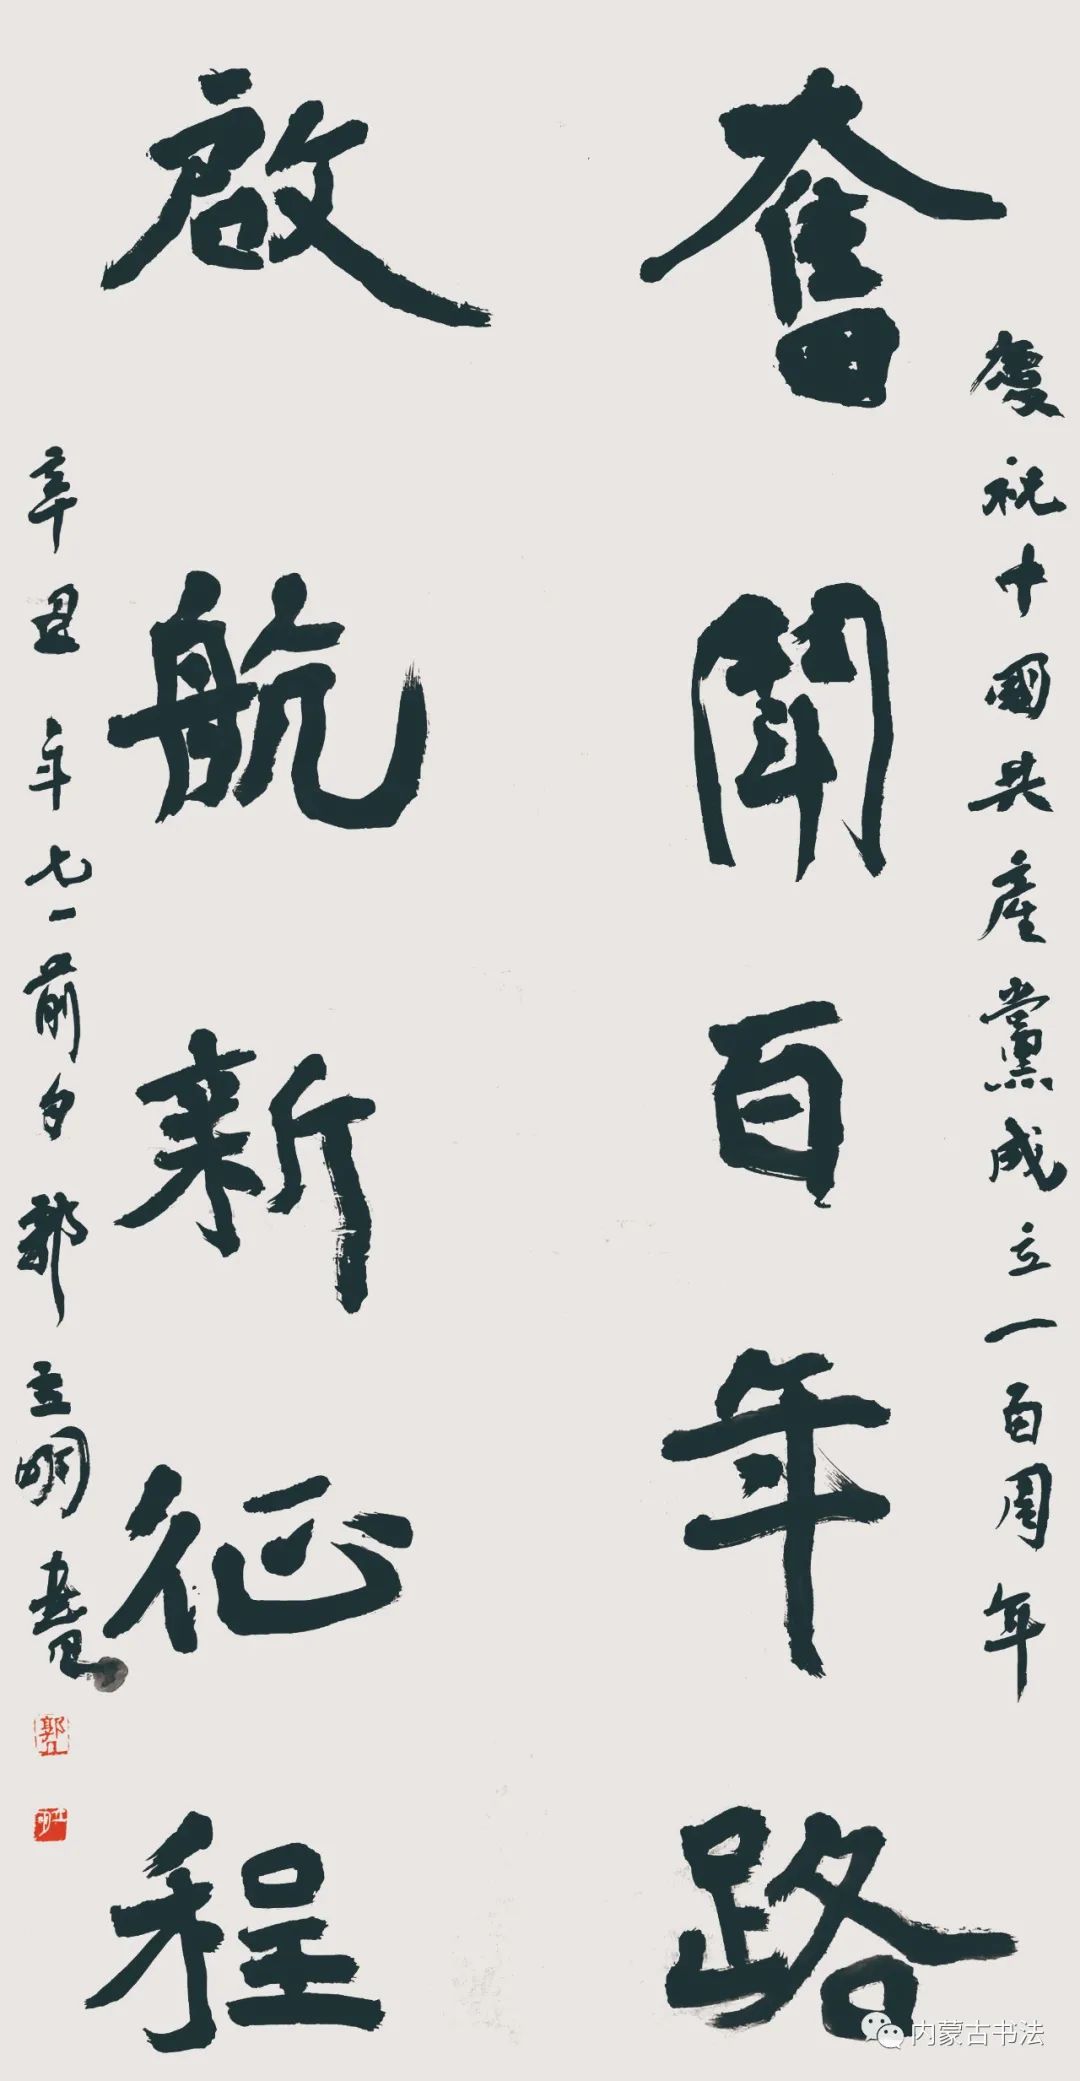 慶祝中國共產黨成立一百周年
奮鬥百年路
啟航新征程
辛丑年七一前夕郭立明書
郭立
明
内蒙古书法